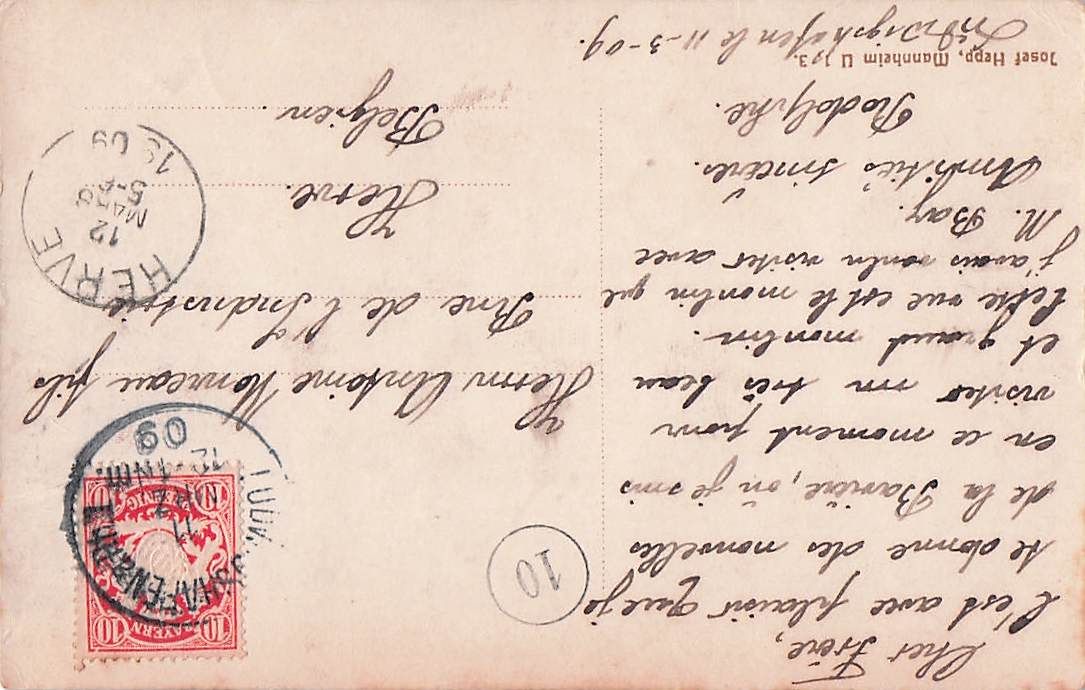 Josef Hepp, Mannheim U 1, 3.
Ludwigshafen le 11-3-09.
Cher Frère,
C'est avec plaisir que je
te donne des nouvelles
de la Bavière, où je suis
en ce moment pour
visiter un très beau
et grand moulin.
Cette vue est le moulin que
j'avais voulu visiter avec
M. Bay.
Amitiés sincères.
Rodolphe.
10
BAYERN
10 10
PFENNIG
10 10
LUDWIGSHAFEN
11
MRZ
NM
09
Herrn Antoine fils
Rue de l'Industrie
Herve.
Belgien
HERVE
12
MARS
5-6
1909